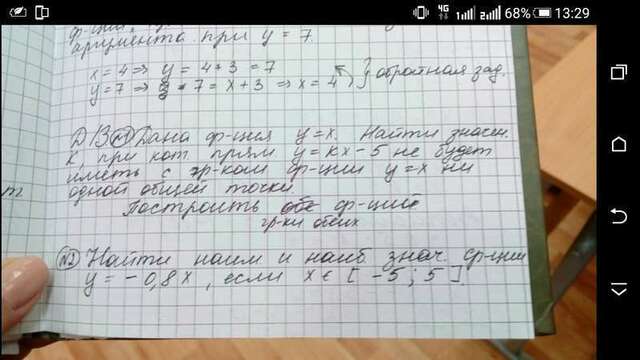 4G 68% 13:29
ф-ции,
аргумента при y = 7.
x = 4 => y = 4 + 3 = 7
y = 7 => 7 = x + 3 => x = 4 } обратная зад.
Д/З №1 Дана ф-ция y = x. Найти значен.
K, при кот. прям y = kx - 5 не будет
иметь с гр-ком ф-ции y = x ни
одной общей точки.
Построить ф-ций
гр-ки обеих
№2 Найти наим и наиб знач. ф-ции
y = -0,8x, если x ∈ [-5; 5].